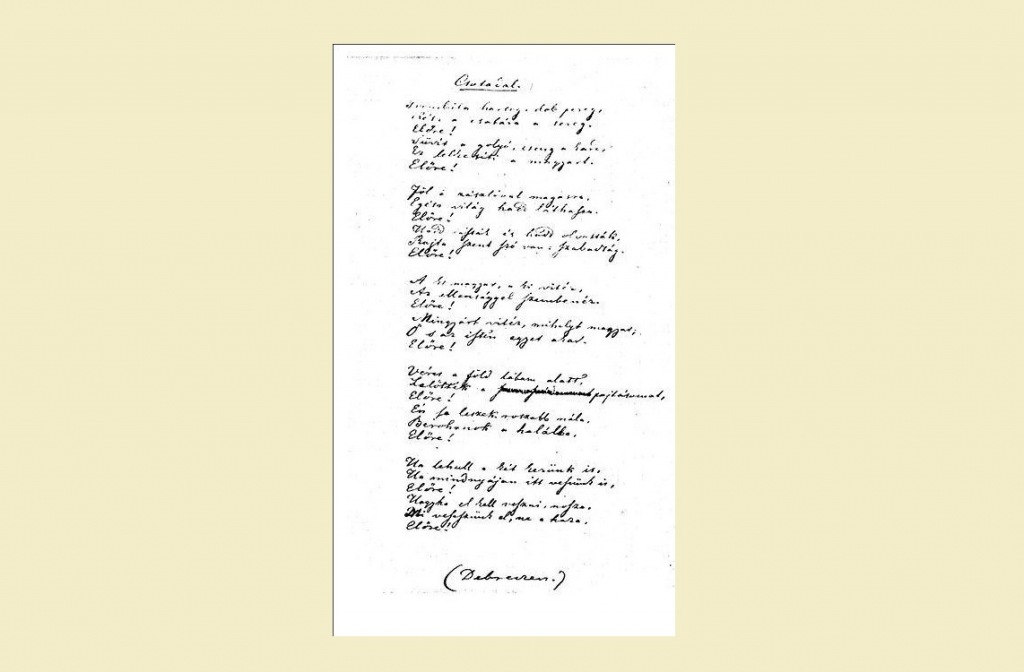 Csatadal.
Trombita harsog, dob pereg,
Kész a csatára a sereg.
Előre!
Süvít a golyó, cseng a kard,
Ez lelkesíti a magyart.
Előre!
Föl a zászlóval magasra,
Egész világ hadd láthassa.
Előre!
Hadd lássák és hadd olvassák,
Rajta szent szó van: szabadság.
Előre!
A ki magyar, a ki vitéz,
Az ellenséggel szembenéz.
Előre!
Mingyárt vitéz, mihelyt magyar;
Ő s az isten egyet akar.
Előre!
Véres a föld lábam alatt,
Lelőtték a pajtásomat,
Előre!
Én se leszek rosszabb nála,
Berohanok a halálba,
Előre!
Ha lehull a két kezünk is,
Ha mindnyájan itt veszünk is,
Előre!
Hogyha el kell veszni, nosza,
Mi veszszünk el, ne a haza,
Előre!
(Debreczen.)